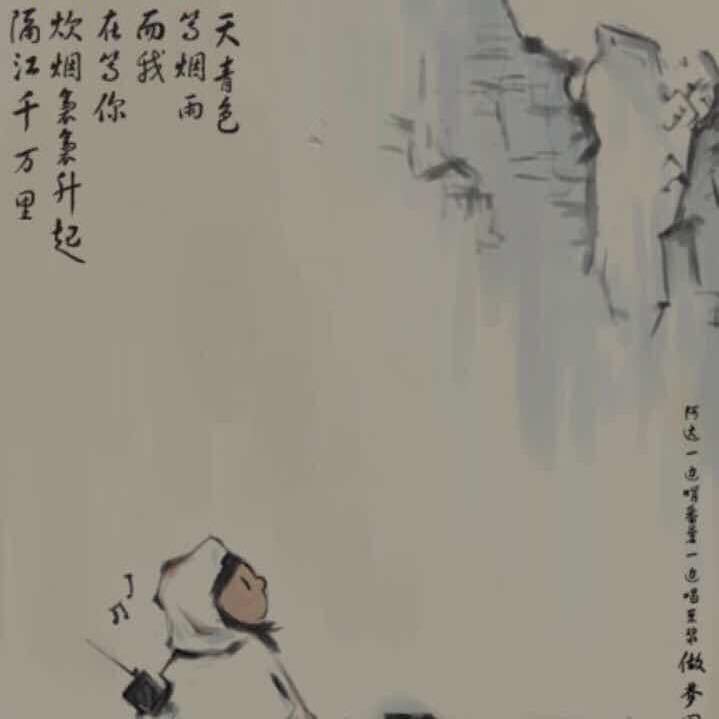 天青色
等烟雨
而我
在等你
炊烟袅袅升起
隔江千万里
阿达一边啃番薯一边唱至
做梦